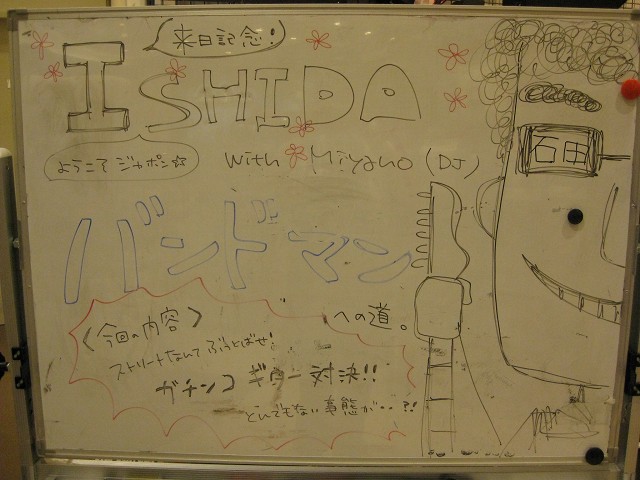 来日記念!
ISHIDA
ようこそ ジャポン☆
with Miyano (DJ)
石田
バンドマン
への道。
《今回の内容》
ストリートなんて ぶっとばせ!
ガチンコ ギター対決!!
とんでもない事態が・・?!